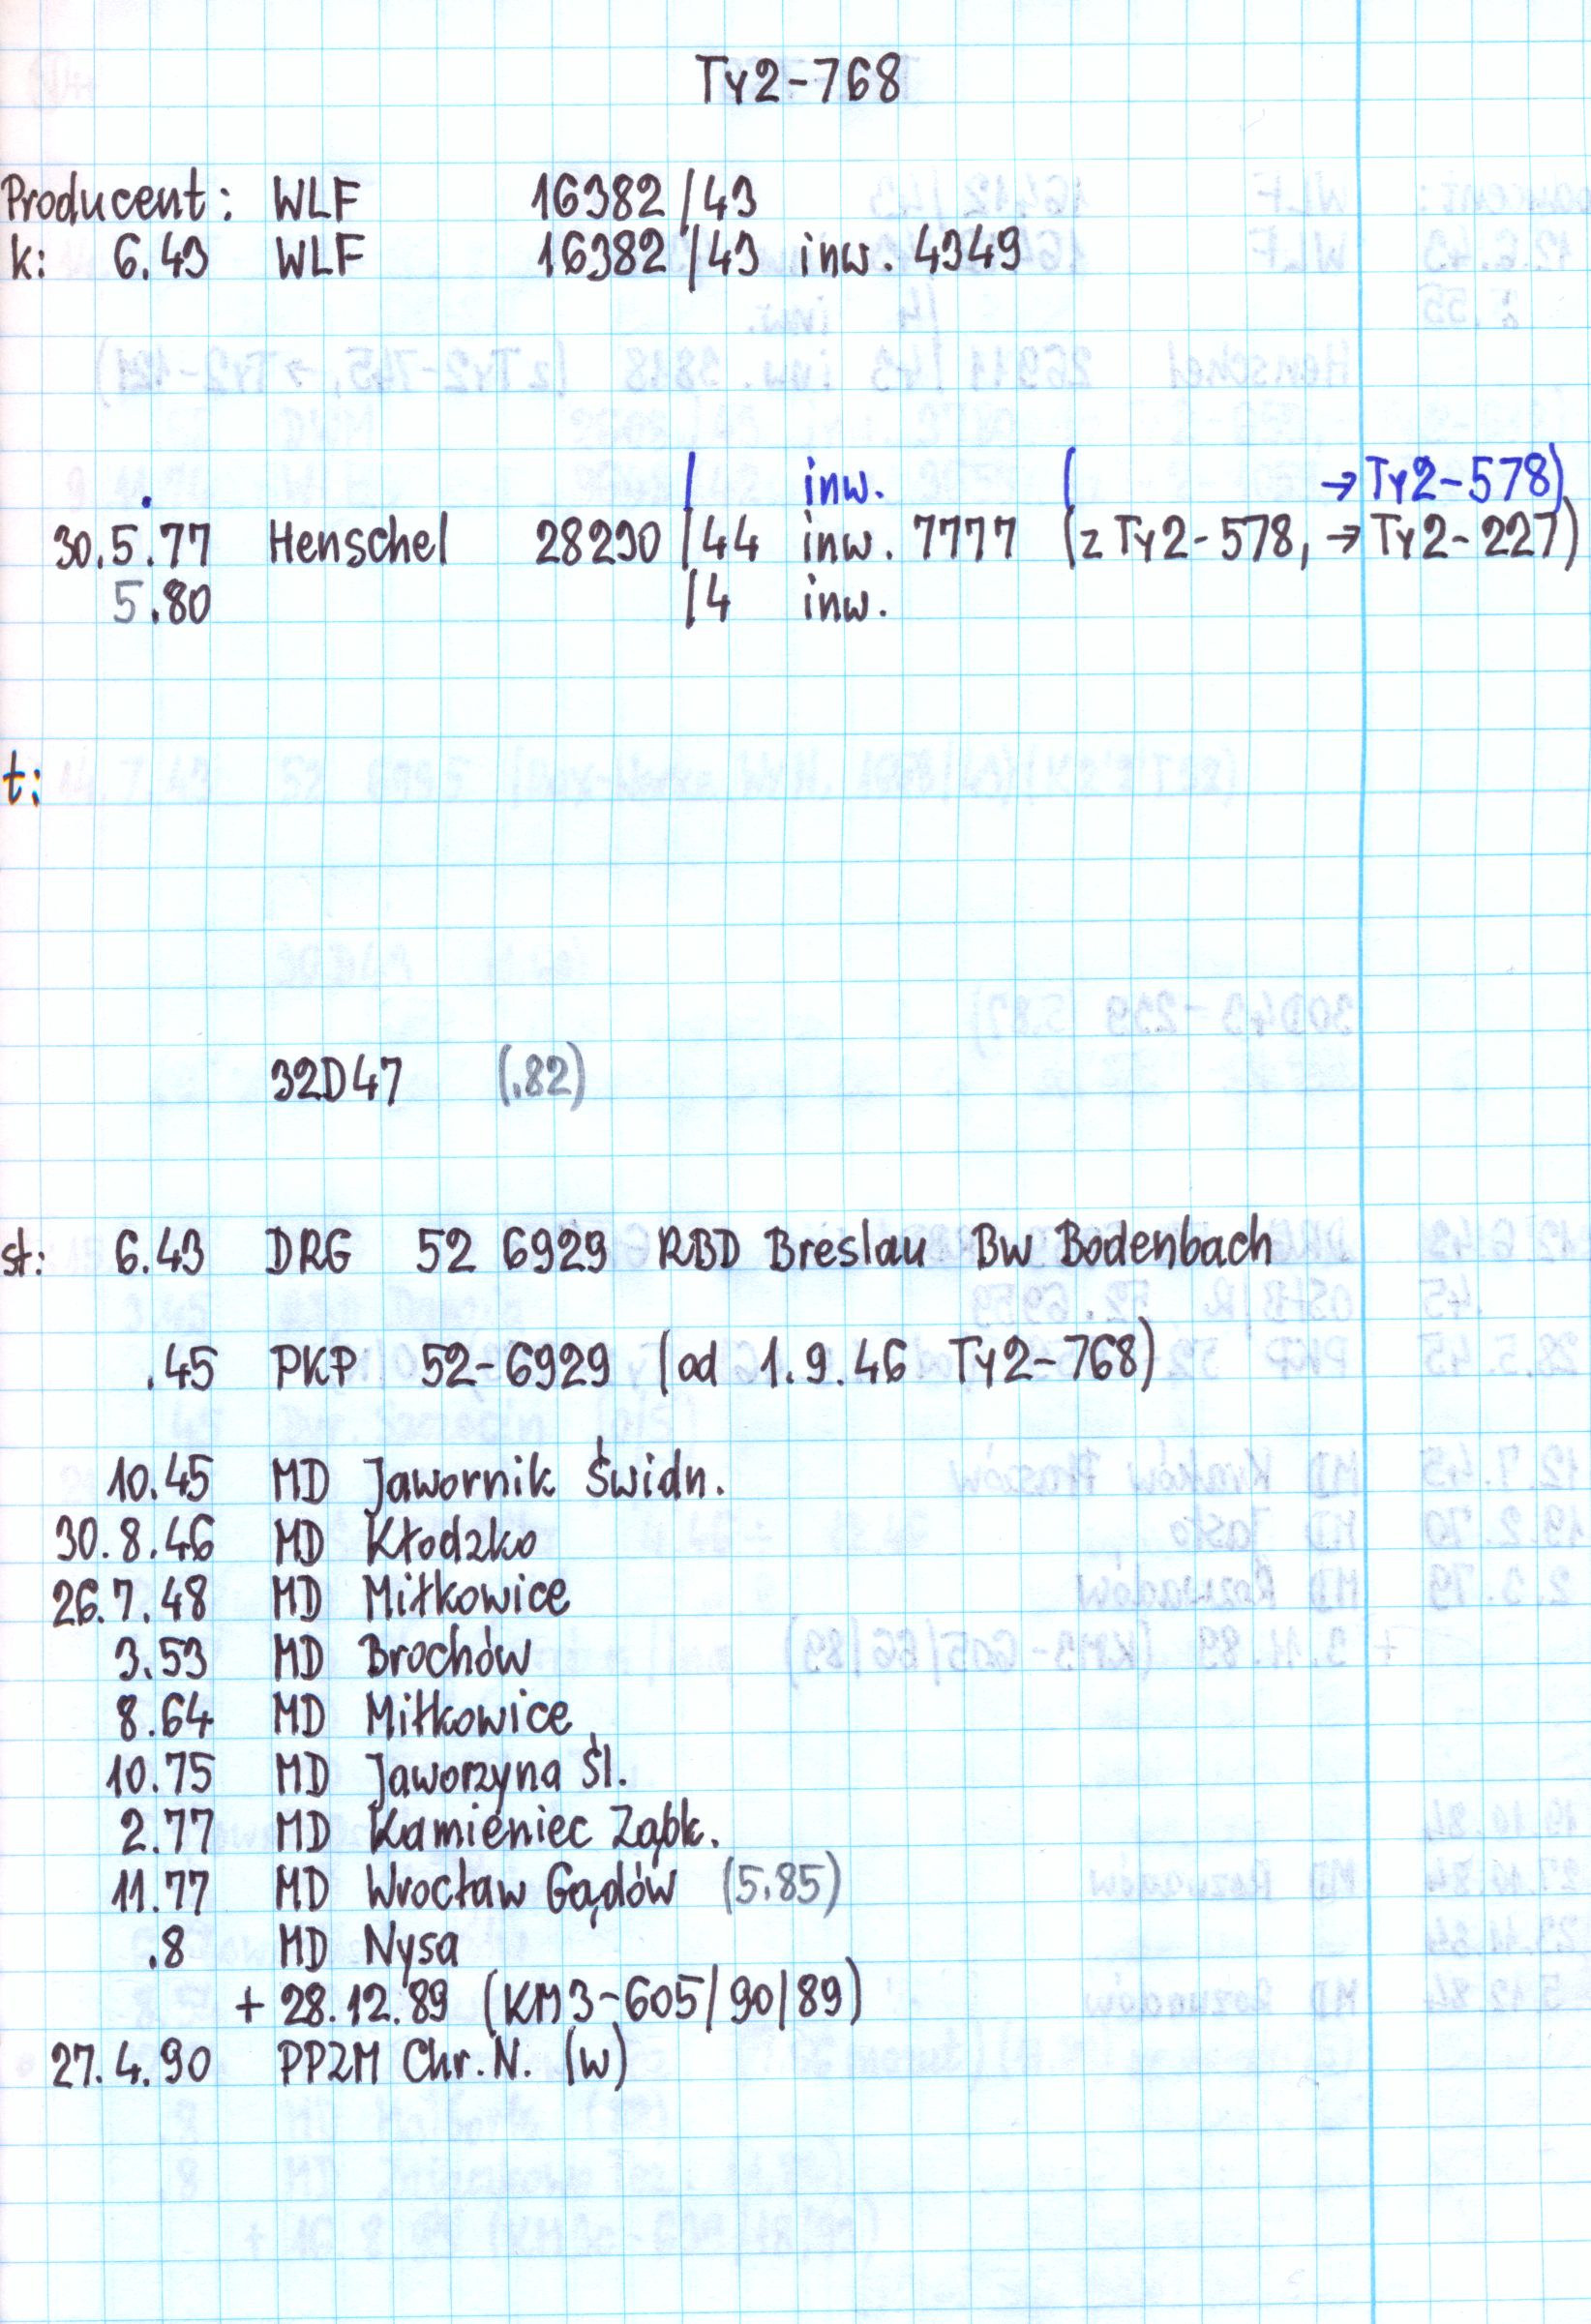 Ty2-768
Producent: WLF 16382/43
k: 6.43 WLF 16382/43 inw. 4349
. / inw. ( → Ty2-578)
30.5.77 Henschel 28290/44 inw. 7777 (z Ty2-578, → Ty2-227)
5.80 /4 inw.
t:
32D47 (.82)
st: 6.43 DRG 52 6929 RBD Breslau Bw Bodenbach
.45 PKP 52-6929 (od 1.9.46 Ty2-768)
10.45 MD Jawornik Świdn.
30.8.46 MD Kłodzko
26.7.48 MD Miłkowice
3.53 MD Brochów
8.64 MD Miłkowice
10.75 MD Jaworzyna Śl.
2.77 MD Kamieniec Ząbk.
11.77 MD Wrocław Gądów (5.85)
.8 MD Nysa
+ 28.12.89 (KM3-605/90/89)
27.4.90 PPZM Chr.N. (w)